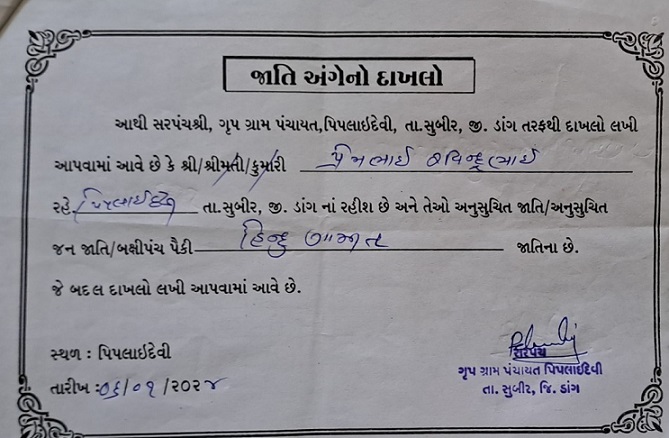 જાતિ અંગેનો દાખલો
આથી સરપંચશ્રી, ગૃપ ગ્રામ પંચાયત,પિપલાઇદેવી, તા.સુબીર, જી. ડાંગ તરફથી દાખલો લખી
આપવામાં આવે છે કે શ્રી/શ્રીમતી/કુમારી પ્રેમભાઈ રવિન્દ્રભાઈ
રહે. પિપલાઈદેવી તા.સુબીર, જી. ડાંગ નાં રહીશ છે અને તેઓ અનુસુચિત જાતિ/અનુસુચિત
જન જાતિ/બક્ષીપંચ પૈકી હિન્દુ ગામીત જાતિના છે.
જે બદલ દાખલો લખી આપવામાં આવે છે.
સ્થળ : પિપલાઇદેવી
તારીખ :૦૬/૦૧/૨૦૨૪
સરપંચ
ગૃપ ગ્રામ પંચાયત પિપલાઇદેવી
તા. સુબીર, જિ. ડાંગ